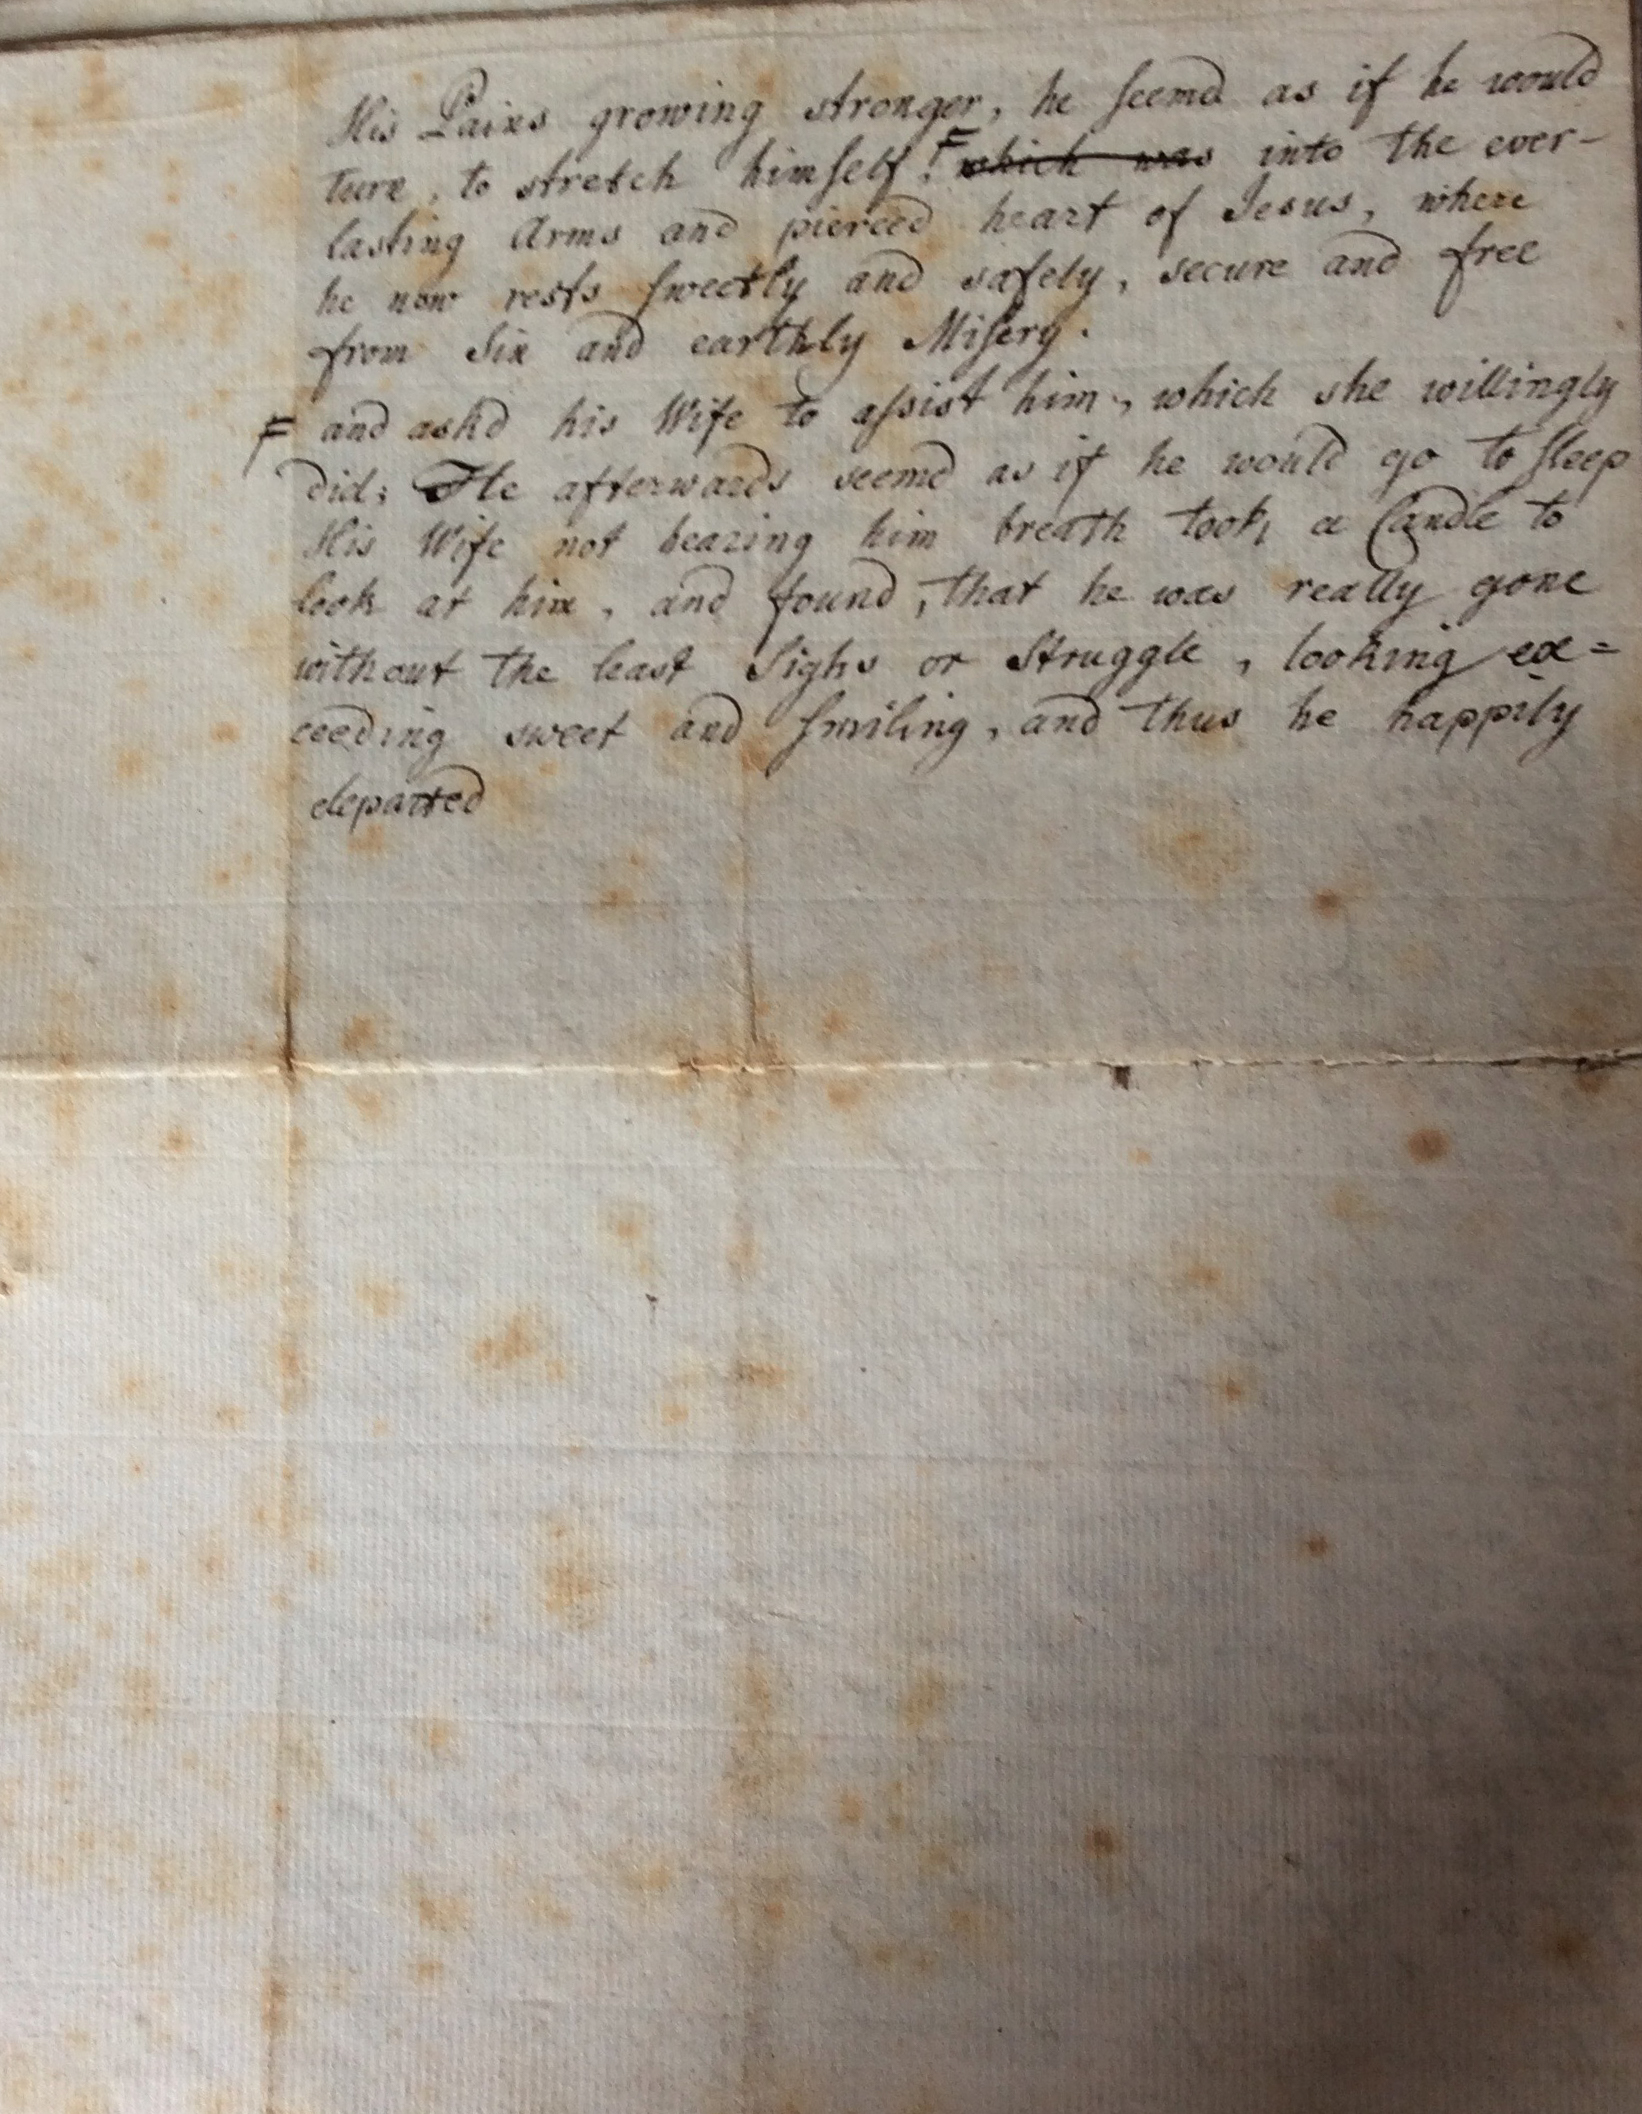 His Pains growing stronger, he seemd as if he would
turn, to stretch himself! F which was into the ever-
lasting Arms and pierced heart of Jesus, where
he now rests sweetly and safely, secure and free
from Sin and earthly Misery.
F and ask'd his Wife to assist him, which she willingly
did; He afterwards seemd as if he would go to sleep
His Wife not hearing him breath took a Candle to
look at him, and found, that he was really gone
without the least Sighs or Struggle, looking ex=
ceeding sweet and smiling, and thus he happily
departed